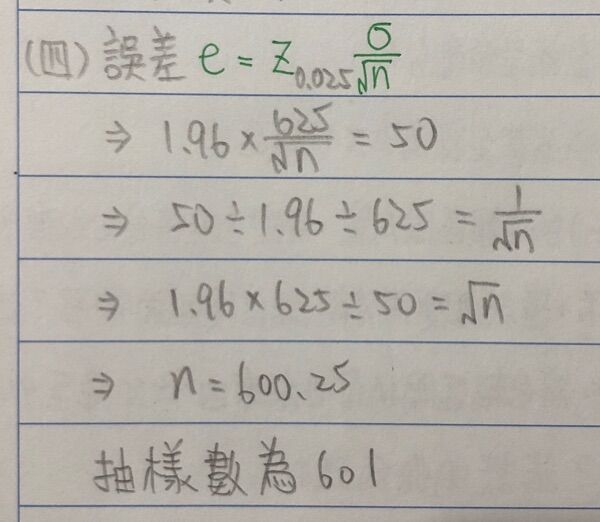 (四) 誤差 e = Z₀.₀₂₅ σ/√n
⇒ 1.96 × 625/√n = 50
⇒ 50 ÷ 1.96 ÷ 625 = 1/√n
⇒ 1.96 × 625 ÷ 50 = √n
⇒ n = 600.25
抽樣數為 601